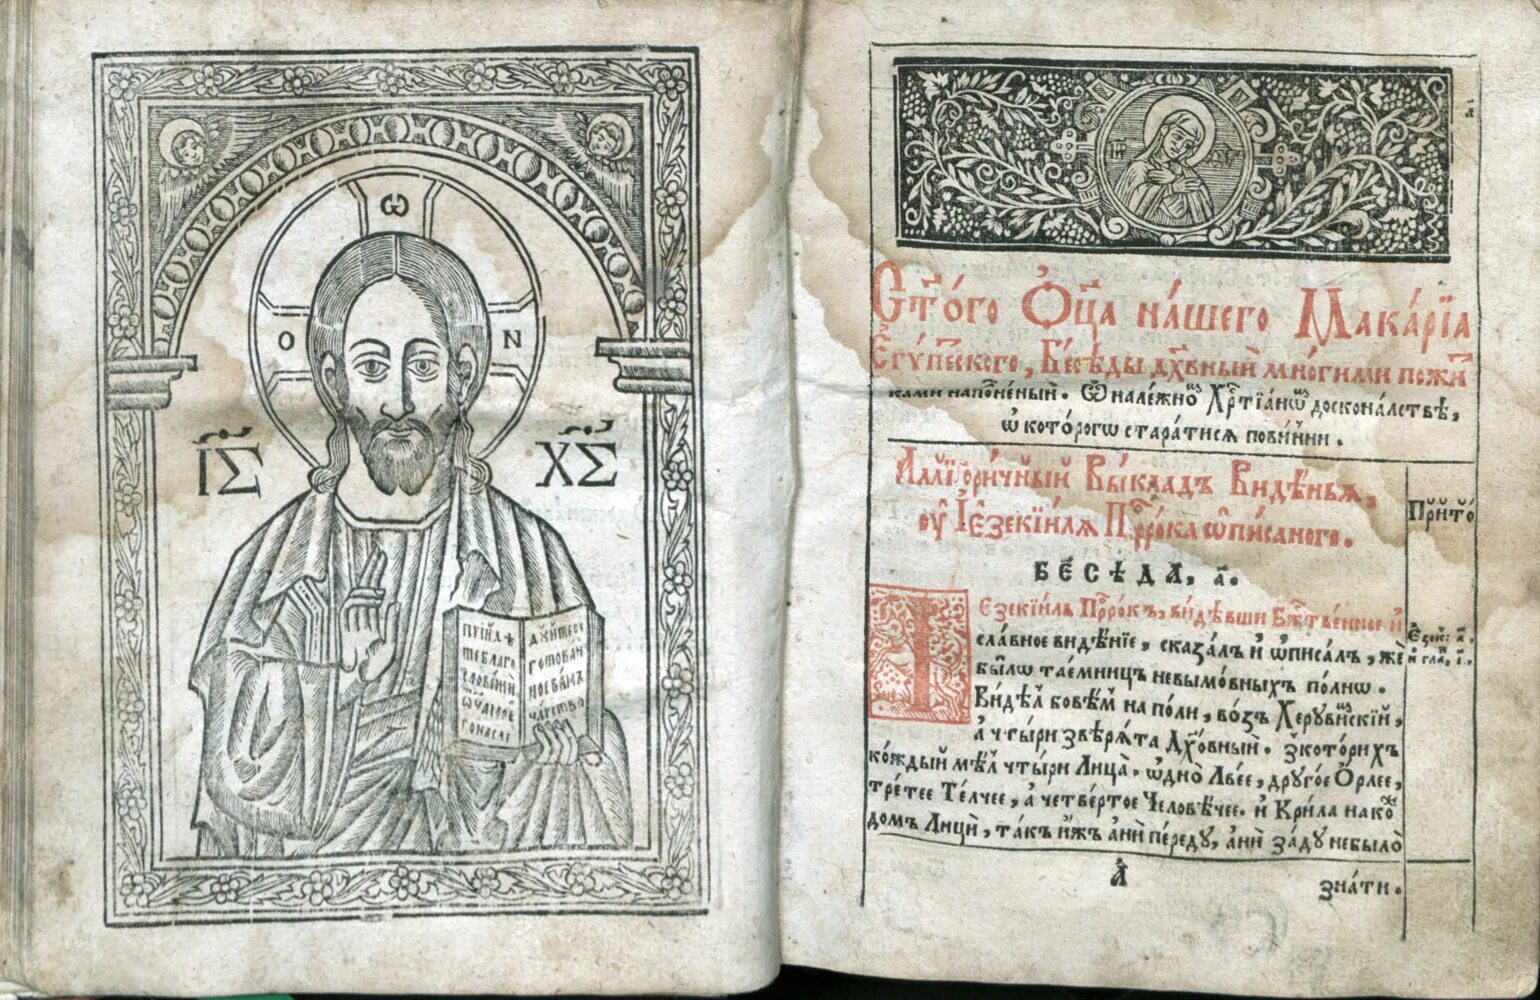 ѡ
о
N
ІС
ХС
ПРІИДѢ
ТЕ БЛАГО
СЛОВЕНІИ
ѾЦА МОЕ
ГО НАСЛѢ
ДУЙТЕ УГО
ГОТОВАН
НОЕ ВАМЪ
ЦАРСТВО
Ст҃о́го Ѻц҃а на́шего Мака́рїа
Єгѵ́петского, Бесѣ́ды дх҃о́вный мно́гими пожи́т
ками наполне́ный. Ѿ нале́жно Хрⷭ҇тїа́нѡⷨ досконалствѣ,
ѡ кото́рогѡ стара́тися пови́нни.
Аллиго́ричный Вы́кладъ Видѣ́нья,
ѹ҆ Іезекїи́ля Прⷪ҇ро́ка ѡ҆писаного.
БЕСѢДА, а҃.
Прито́
Іезекїиль Прⷪ҇ро́къ, ви́дѣвши Бж҃стве́нное и҆
сла́вное видѣ́нїе, сказа́лъ и҆ ѡ҆писа́лъ, же
бы́лѡ таемни́цъ невымо́вныхъ по́лнѡ.
Єзек: а҃.
и҆ гла, і҃.
Ви́дѣл бовѣ́м на по́ли, во́зъ Херуви́мскїй,
а҆ чты́ри звѣря́та Дх҃о́вный. з кото́рихъ
ко́ждый мѣ́л чты́ри Лица̀. ѡ҆дно̀ Лвее, дру́гое Ѻрлее,
тре́тее Те́лчее, а҆ четве́ртое Человѣ́чее. и҆ Кри́ла на кож
домъ Лицѝ, та́къ и҆жъ а҆нѝ пе́реду, а҆нѝ за́ду не было̀
А
зна́ти.